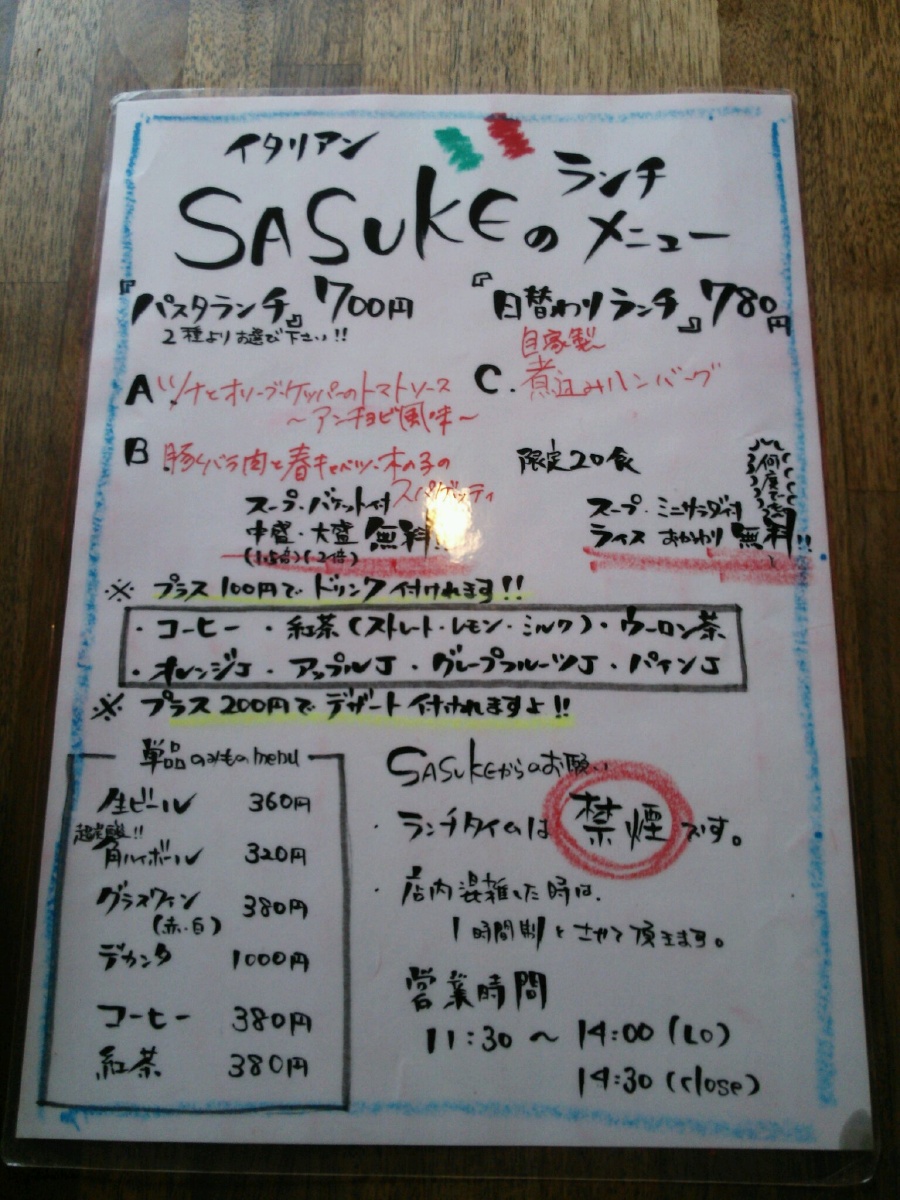 イタリアン
SASUKEの ランチ
メニュー
『パスタランチ』700円
2種よりお選び下さい!!
A ツナとオリーブ・ケッパーのトマトソース
〜アンチョビ風味〜
B 豚バラ肉と春キャベツ・木の子の
スパゲッティ
スープ・バケット付
中盛・大盛 無料!!
(1.5倍)(2倍)
『日替わりランチ』780円
自家製
C. 煮込みハンバーグ
限定20食
何度でも
スープ・ミニサラダ付
ライス おかわり 無料!!
※ プラス100円で ドリンク 付けれます!!
・コーヒー ・紅茶(ストレート・レモン・ミルク)・ウーロン茶
・オレンジJ ・アップルJ ・グレープフルーツJ ・パインJ
※ プラス200円で デザート 付けれますよ!!
単品のみもの menu
生ビール 360円
超実験!!
角ハイボール 320円
グラスワイン 380円
(赤・白)
デカンタ 1000円
コーヒー 380円
紅茶 380円
SASUKEからのお願い
・ランチタイムは 禁煙 です。
・店内混雑した時は、
1時間制とさせて頂きます。
営業時間
11:30 〜 14:00 (LO)
14:30 (close)